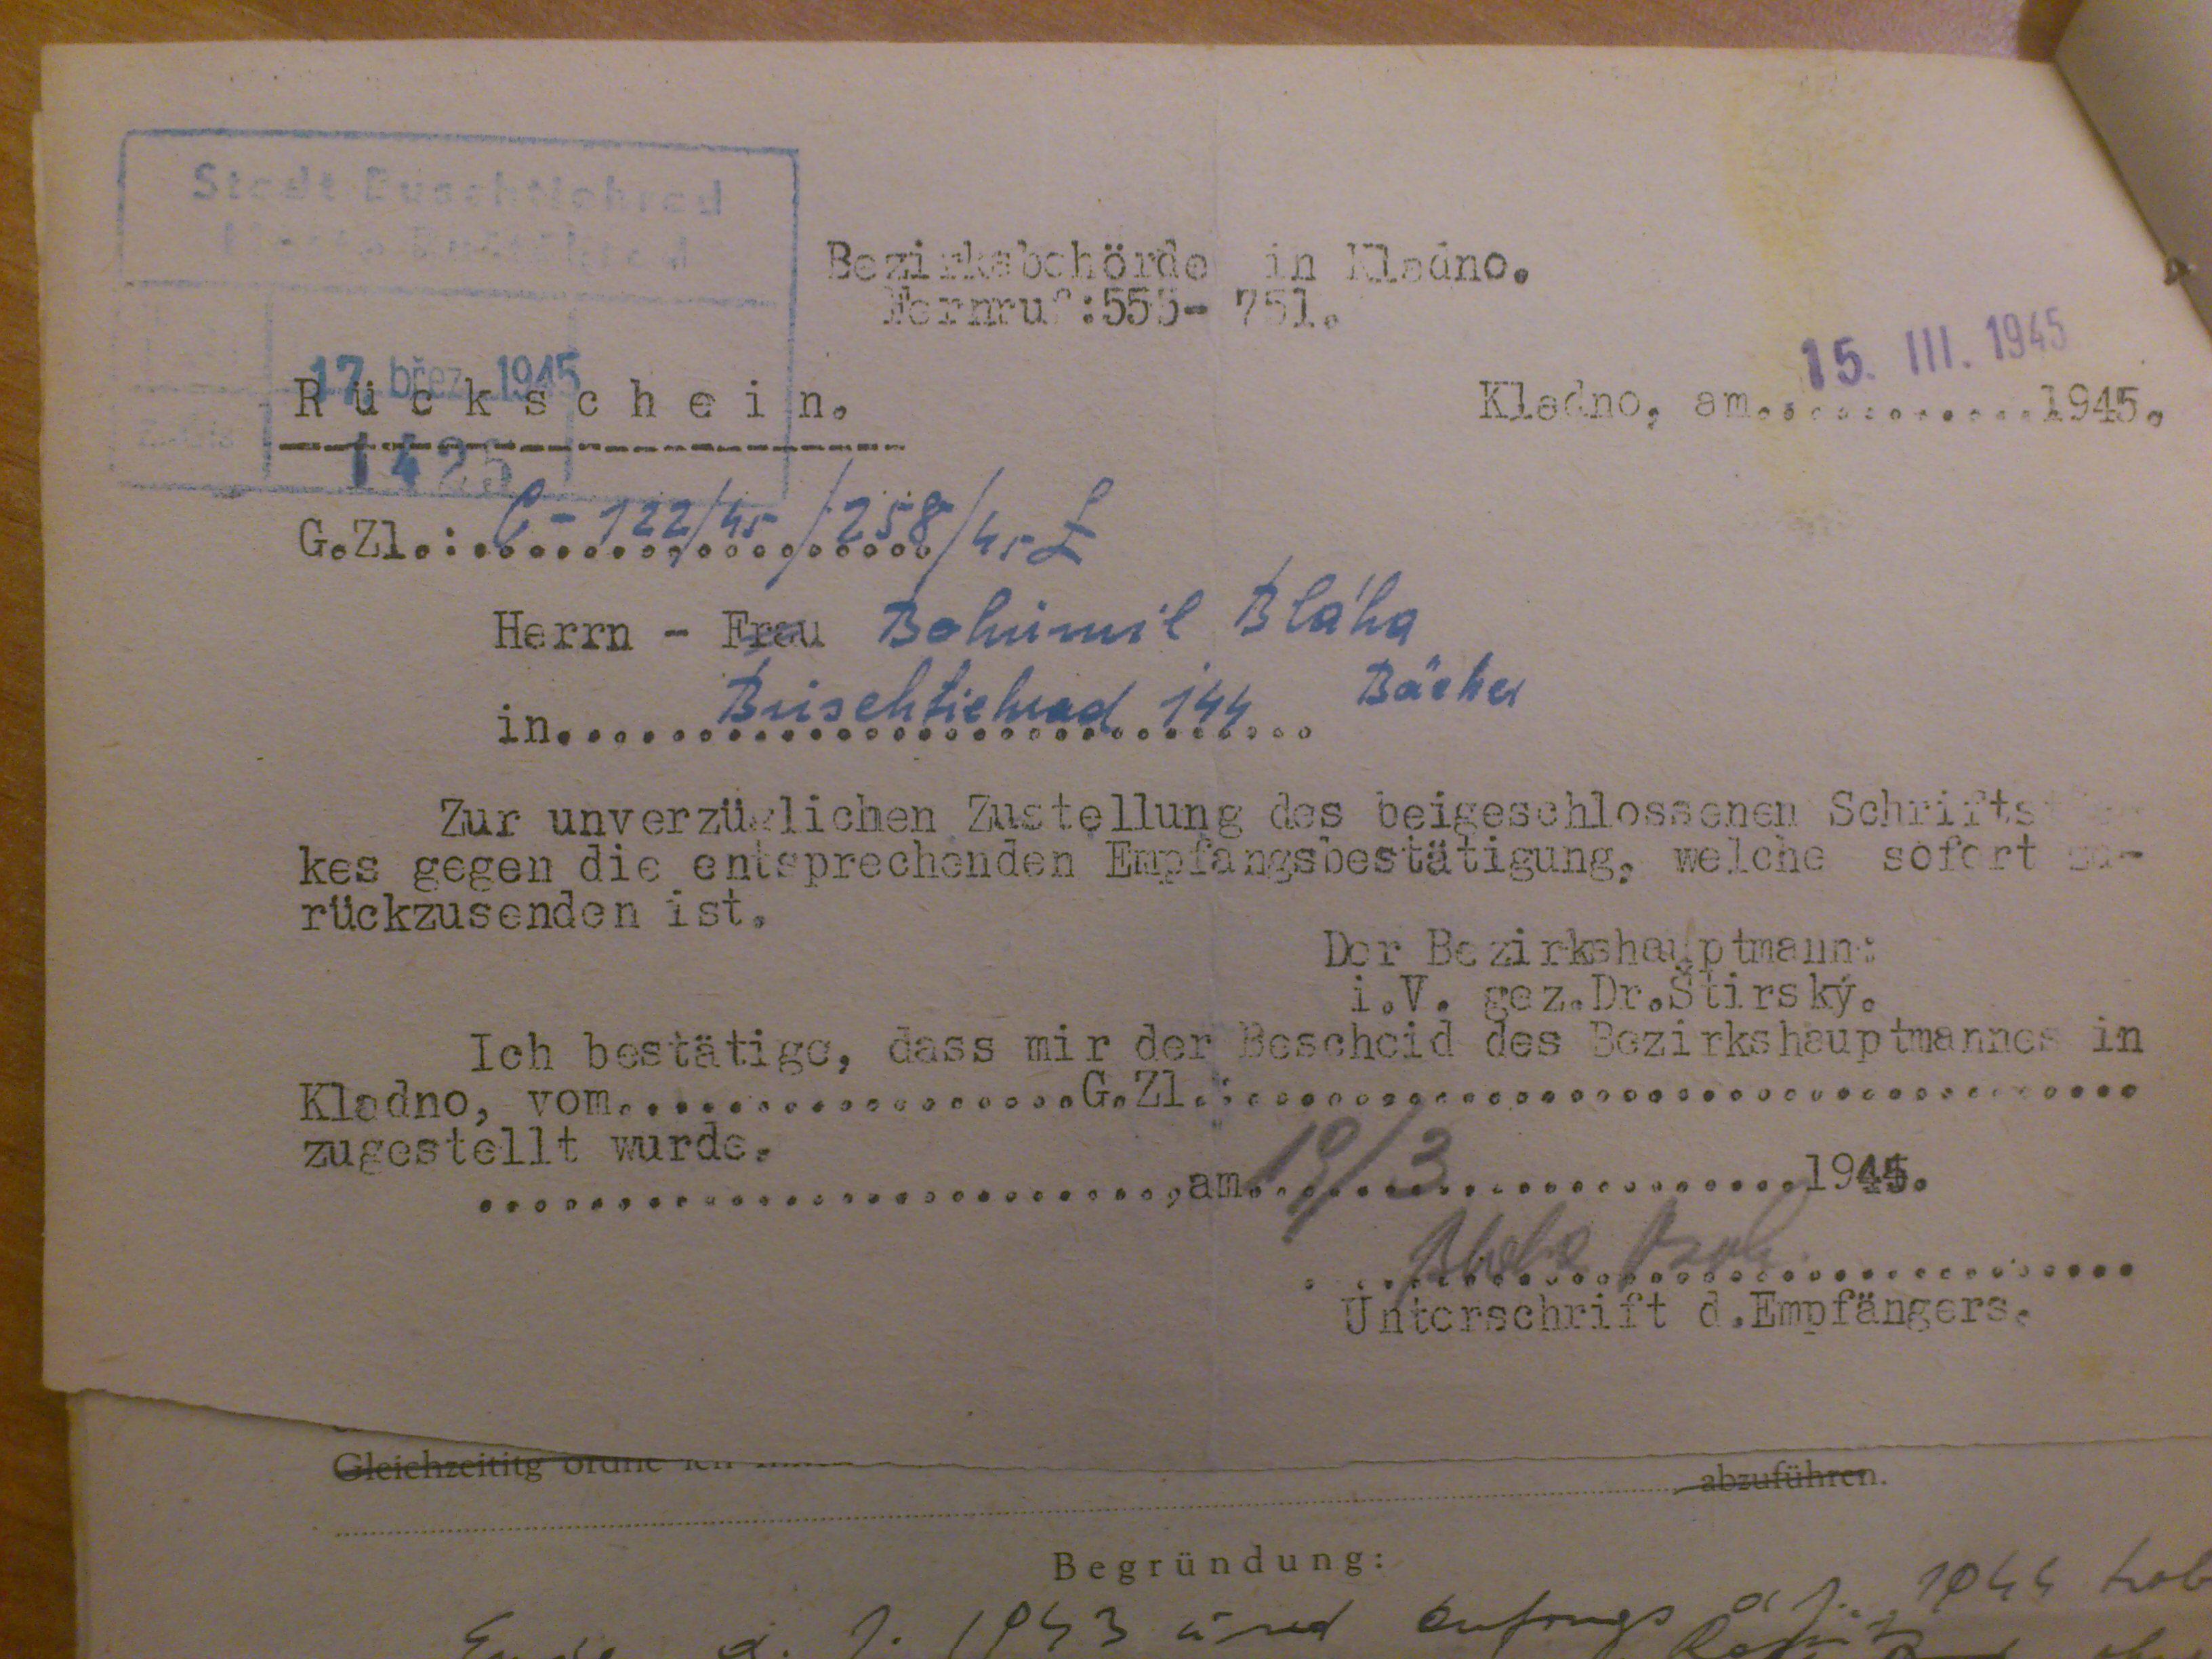 Stadt Buschtiehrad
Bezirksbehörde in Kladno.
Fernruf:555- 751.
17. břez. 1945
15. III. 1945
Rückschein.
Kladno, am.............1945.
1425
G.Zl.: C-122/45/258/45
Herrn - Frau Bohumil Bláha
in Buschtiehrad 144 Bäcker
Zur unverzüglichen Zustellung des beigeschlossenen Schrifts
kes gegen die entsprechenden Empfangsbestätigung, welche sofort zu-
rückzusenden ist.
Der Bezirkshauptmann:
i.V. gez.Dr.Štirský.
Ich bestätige, dass mir der Bescheid des Bezirkshauptmannes in
Kladno, vom.................G.Zl.:..................................
zugestellt wurde.
..........................,am 19/3 1945.
Unterschrift d.Empfängers.
Gleichzeititg ordne ich
abzuführen.
Begründung:
Ende d. J. 1943 und anfangs d. J. 1944